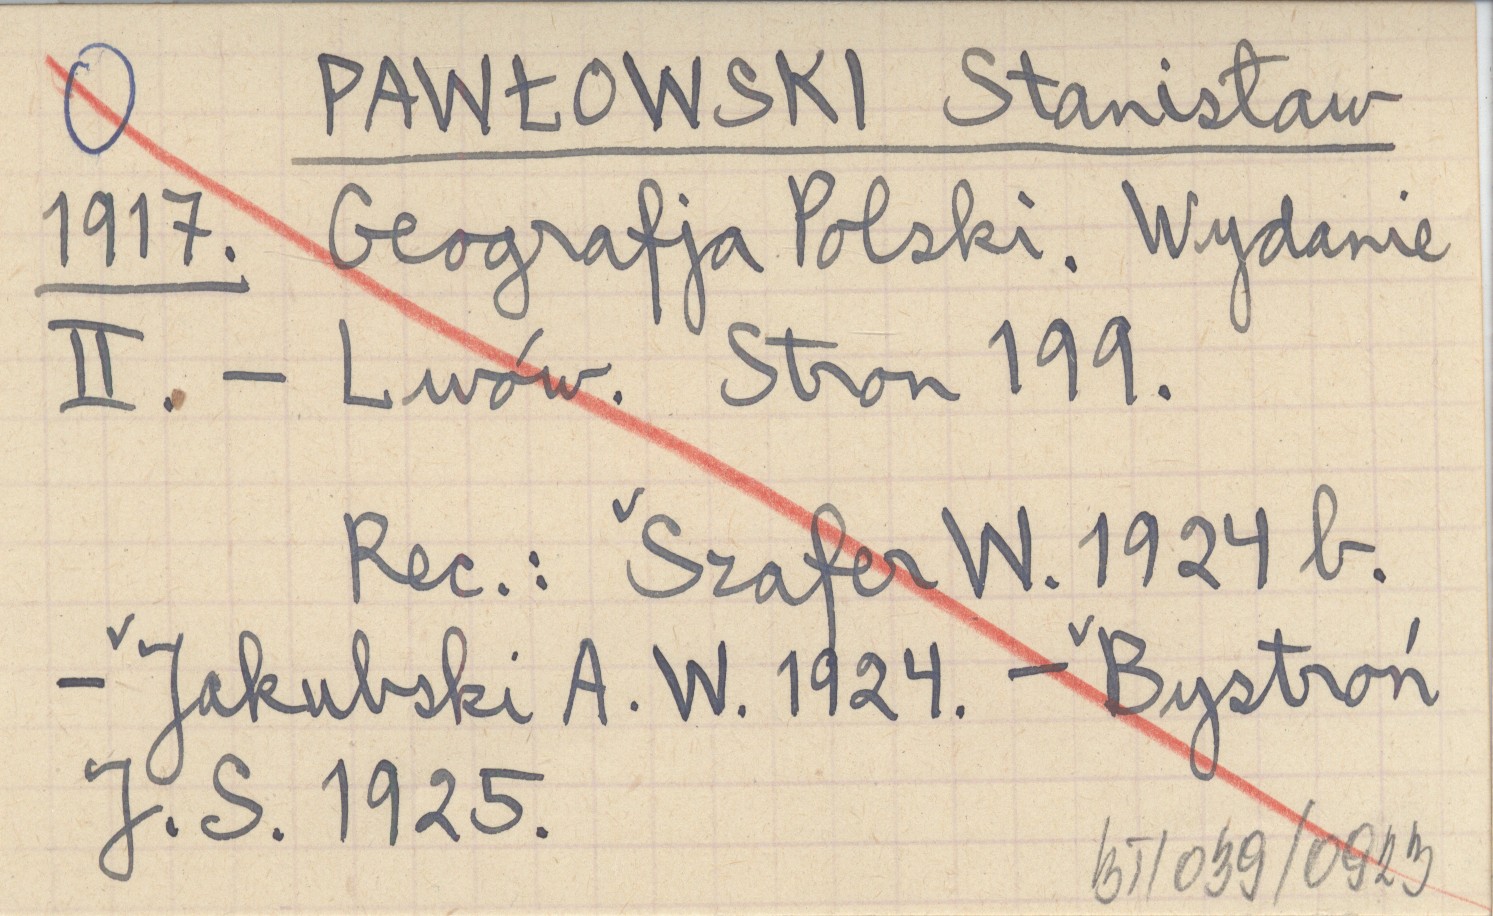 PAWŁOWSKI Stanisław
1917. Geografja Polski. Wydanie
II. – Lwów. Stron 199.
Rec.: ˇSzafer W. 1924 b.
– ˇJakubski A. W. 1924. – ˇBystroń
J. S. 1925.
BT/039/0923